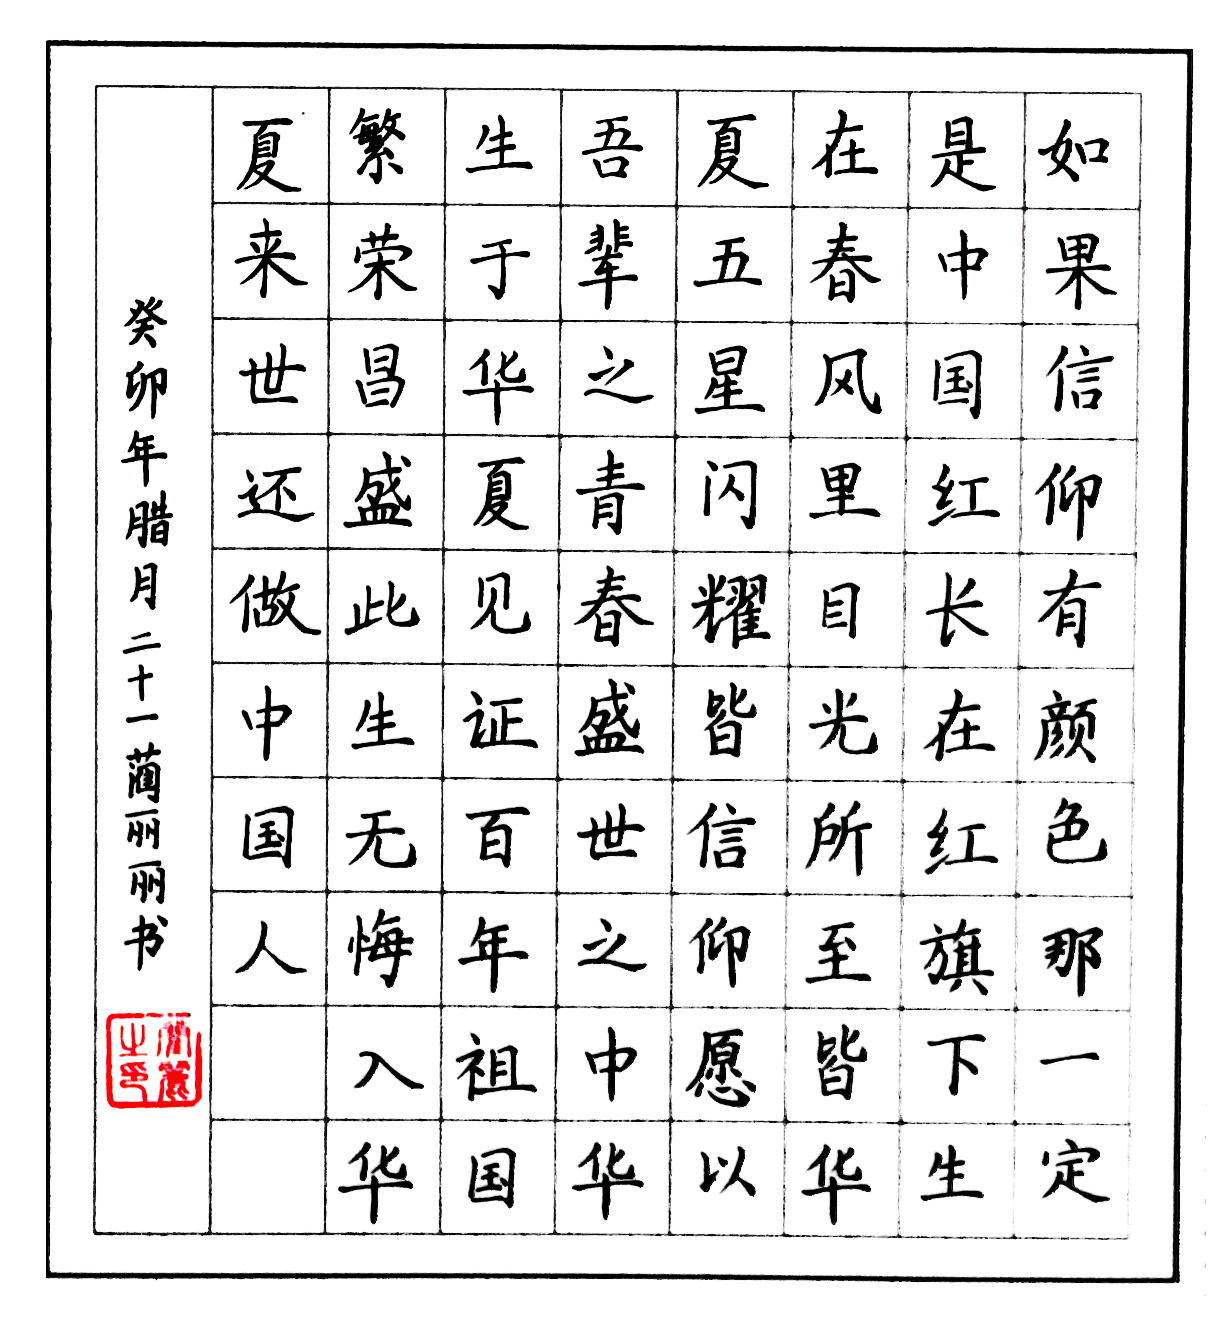 如果信仰有颜色那一定
是中国红长在红旗下生
在春风里目光所至皆华
夏五星闪耀皆信仰愿以
吾辈之青春盛世之中华
生于华夏见证百年祖国
繁荣昌盛此生无悔入华
夏来世还做中国人
癸卯年腊月二十一蔺丽丽书